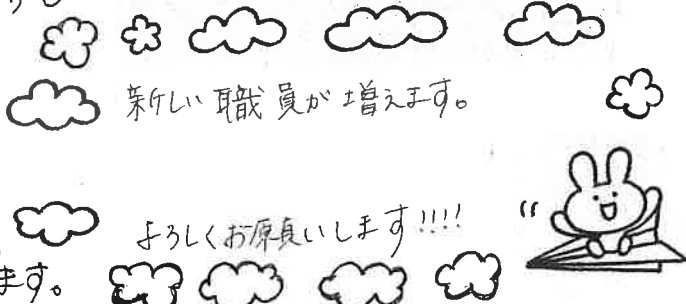 新しい職員が増えます。
よろしくお願いします!!!!
ます。